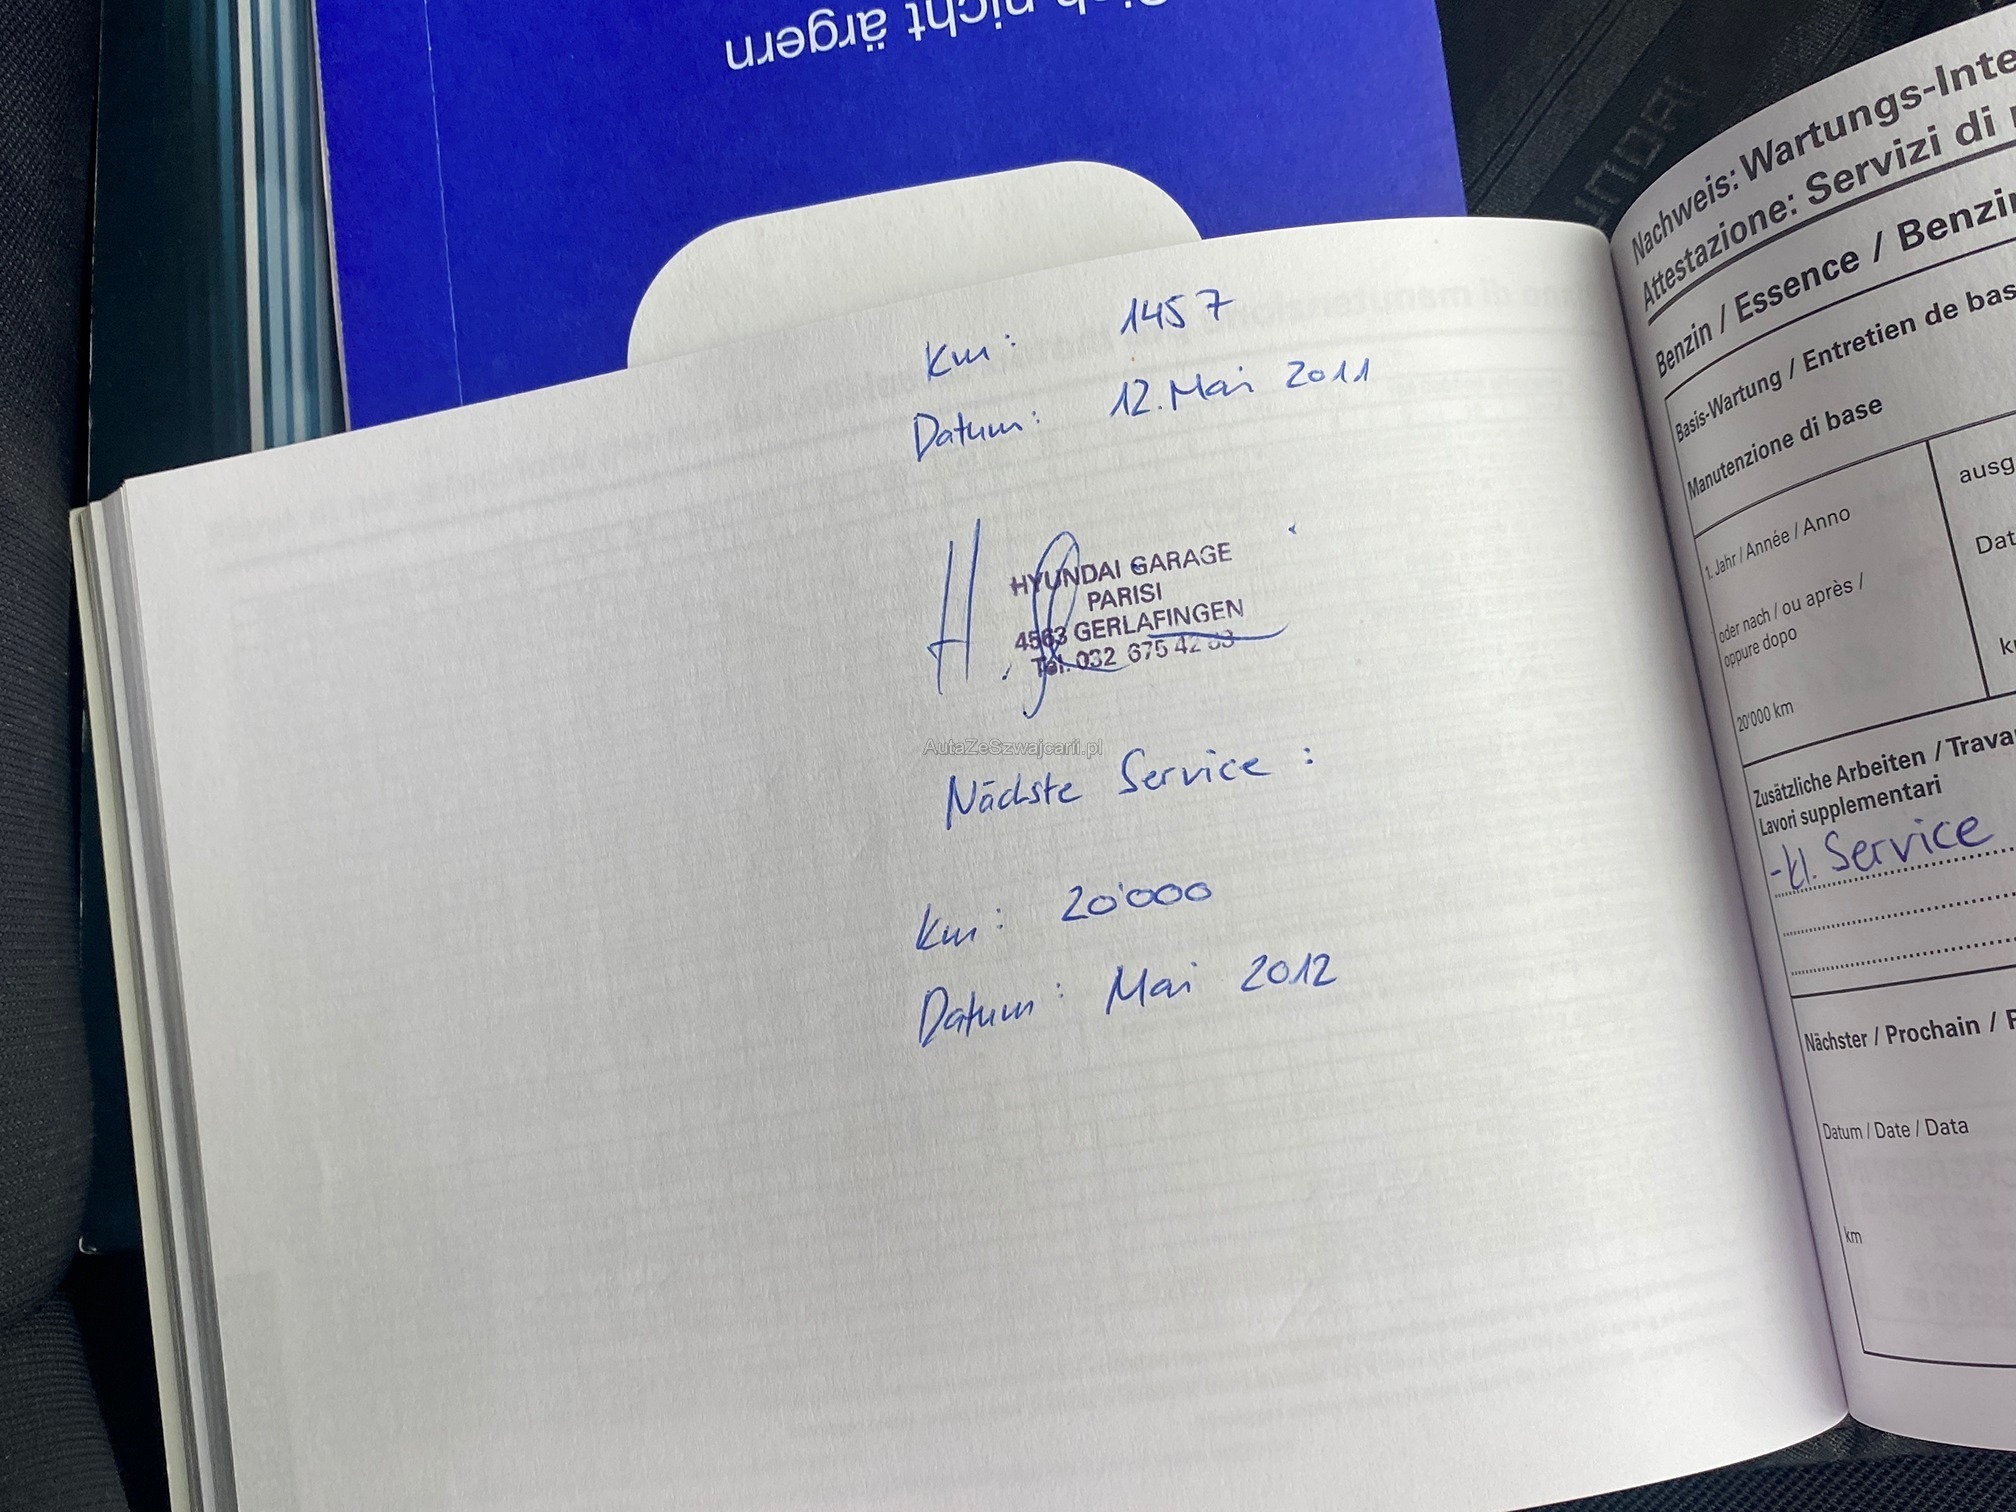 nicht ärgern
Km: 1457
Datum: 12. Mai 2011
HYUNDAI GARAGE
PARISI
4563 GERLAFINGEN
Tel. 032 675 42
AutaZeSzwajcarii.pl
Nächste Service:
Km: 20'000
Datum: Mai 2012
Nachweis: Wartungs-Inte
Attestazione: Servizi di
Benzin / Essence / Benzin
Basis-Wartung / Entretien de bas
Manutenzione di base
1. Jahr / Année / Anno
oder nach / ou après /
oppure dopo
20'000 km
ausg
Dat
Zusätzliche Arbeiten / Trava
Lavori supplementari
-kl. Service
Nächster / Prochain / P
Datum / Date / Data
km